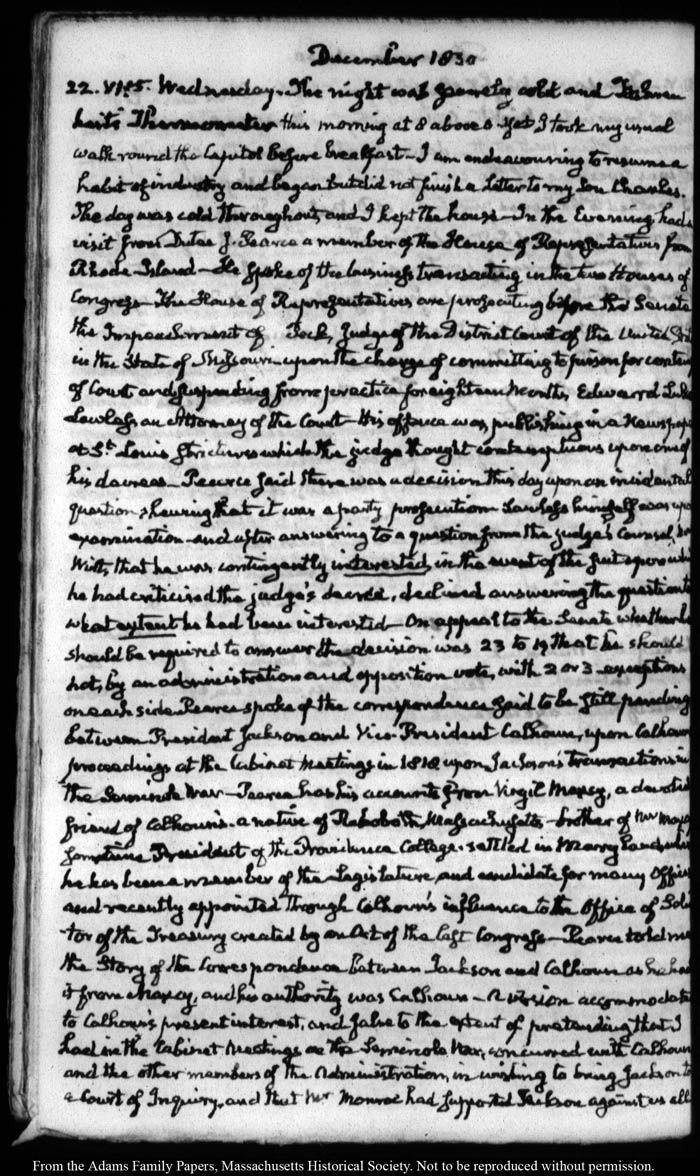 December 1830
22. VI:15. Wednesday. The night was severely cold and Fahren
heit's Thermometer this morning at 8 above 0. Yet I took my usual
walk round the Capitol before breakfast — I am endeavouring to resume a
habit of industry and began but did not finish a Letter to my Son Charles.
The day was cold throughout, and I kept the house — In the Evening, had a
visit from Dutee J. Pearce a member of the House of Representatives from
Rhode Island — He spoke of the business transacting in the two Houses of
Congress — The House of Representatives are prosecuting before the Senate
the Impeachment of Peck, Judge of the District Court of the United Sta
in the State of Missouri — upon the charge of committing to prison for contem
of Court and suspending from practice for eighteen Months, Edward Luke
Lawless an Attorney of the Court — His offence was, publishing in a Newspape
at St. Louis strictures which the judge thought contemptuous upon one of
his decrees — Pearce said there was a decision this day upon an incidental
question, shewing that it was a party prosecution — Lawless himself was upo
examination — and after answering to a question from the judge's Counsel,
Wirt, that he was contingently interested, in the event of the suit upon whi
he had criticised the judge's decree, declined answering the question to
what extent he had been interested — On appeal to the Senate whether he
should be required to answer the decision was 23 to 19 that he should
not, by an administration and opposition vote, with 2 or 3 exceptions
on each side. Pearce spoke of the correspondence said to be still pending
between President Jackson and Vice-President Calhoun, upon Calhoun
proceedings at the Cabinet Meetings in 1818 upon Jackson's transactions in
the Seminole War — Pearce has his accounts from Virgil Maxcy, a devoted
friend of Calhoun's — a native of Rehoboth, Massachusetts — brother of Mr Maxc
sometime President of the Providence College — settled in Maryland
he has been a member of the Legislature, and candidate for many Offices
and recently appointed through Calhoun's influence to the Office of Soli
tor of the Treasury created by an Act of the last Congress — Pearce told me
the Story of the Correspondence between Jackson and Calhoun as he had
it from Maxcy, and his authority was Calhoun — A version accommodate
to Calhoun's present interest, and false to the extent of pretending that I
had in the Cabinet Meetings on the Seminole War, concurred with Calhoun
and the other members of the Administration, in wishing to bring Jackson to
a Court of Inquiry, and that Mr Monroe had supported Jackson against us all
From the Adams Family Papers, Massachusetts Historical Society. Not to be reproduced without permission.